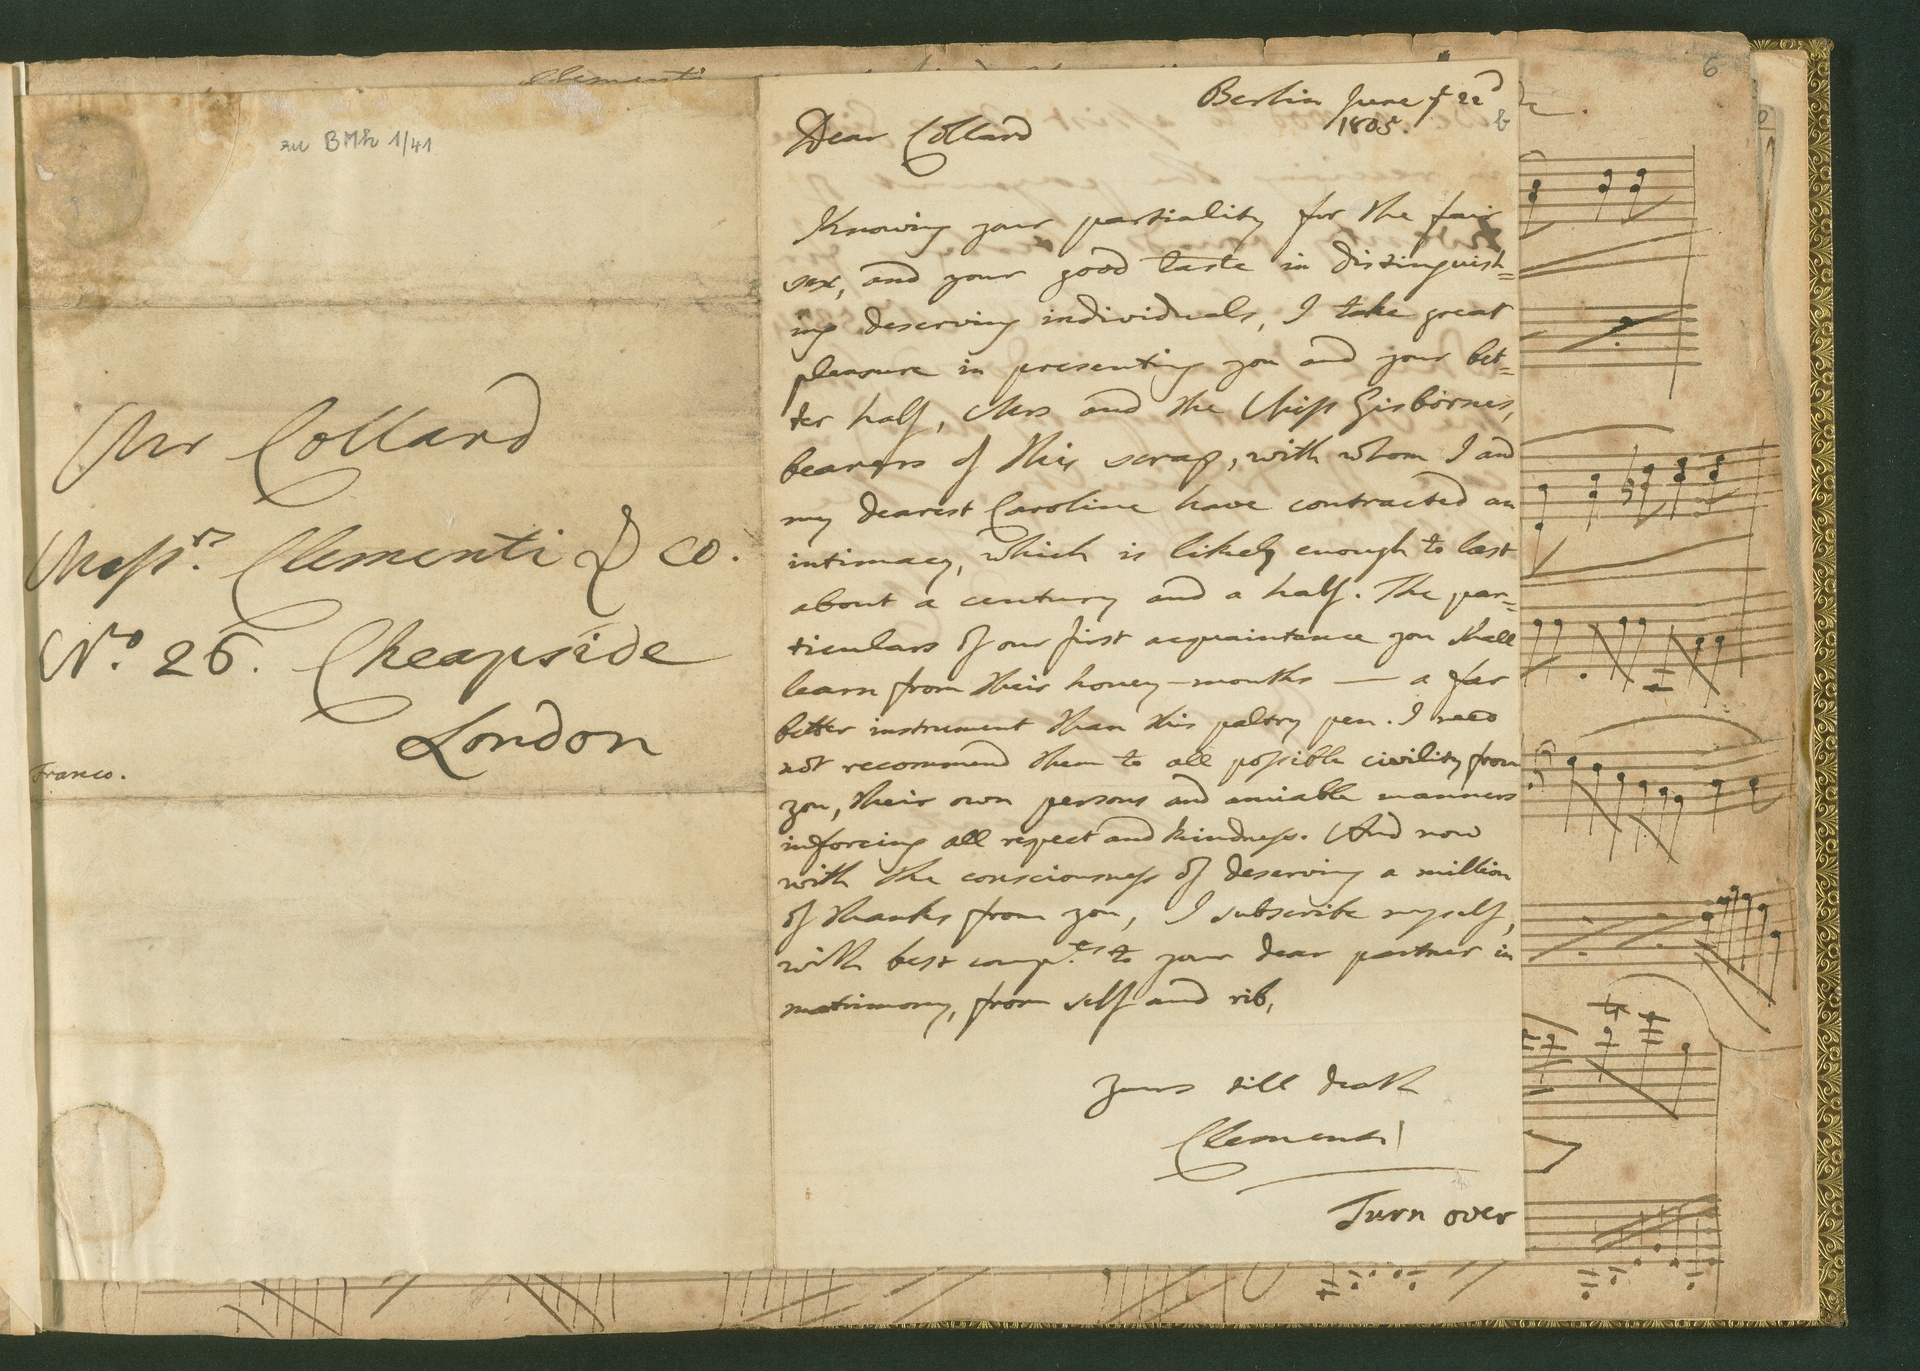 Clementi
6
zu BMh 1/41
Mr Collard
Messrs. Clementi & Co.
No. 26. Cheapside
London
Franco.
Berlin June ye 22d
1805.
b
Dear Collard
Knowing your partiality for the fair
sex, and your good taste in distinguish=
ing deserving individuals, I take great
pleasure in presenting you and your bet=
ter half, Mrs and the Miss Gisbornes,
bearers of this scrap, with whom I and
my dearest Caroline have contracted an
intimacy, which is likely enough to last
about a century and a half. The par=
ticulars of our first acquaintance you shall
learn from their honey-mouths — a far
better instrument than this paltry pen. I need
not recommend them to all possible civility from
you, their own persons and amiable manners
inforcing all respect and kindness. And now
with the consciousness of deserving a million
of thanks from you, I subscribe myself,
with best compts. to your dear partner in
matrimony, from self and rib,
yours till death
Clementi
Turn over